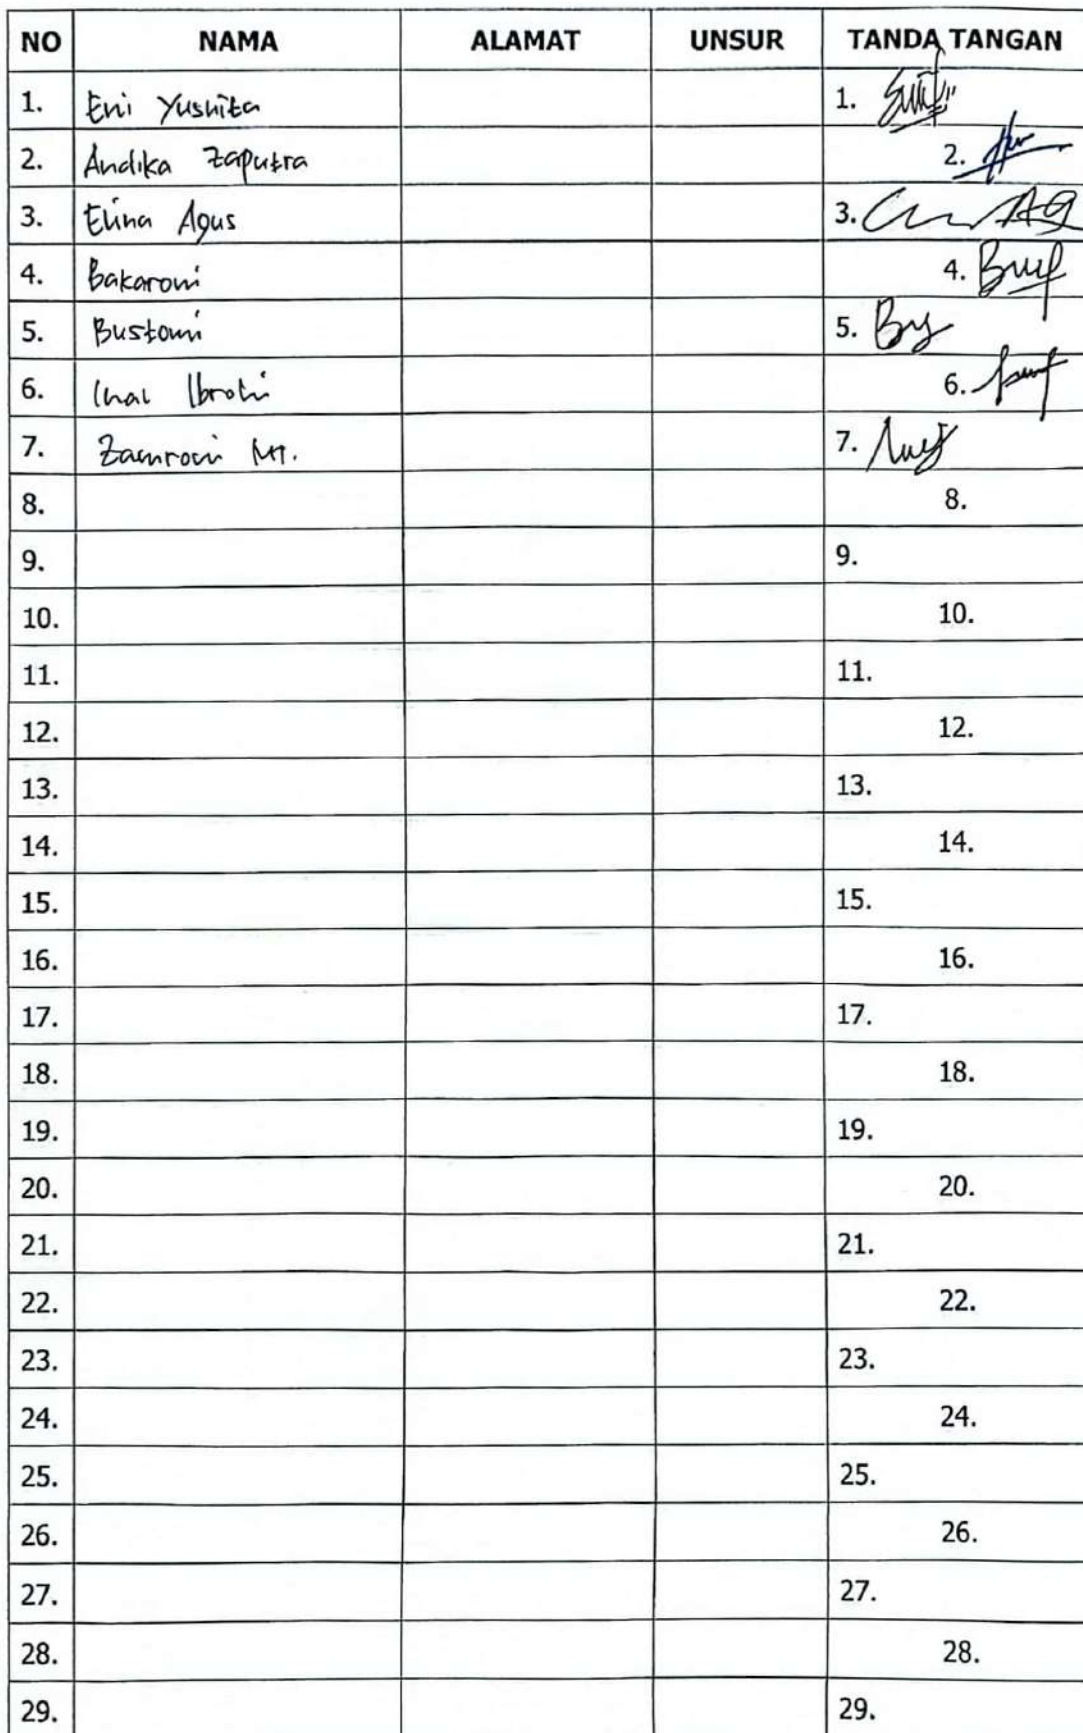 NO NAMA ALAMAT UNSUR TANDA TANGAN
1. Eni Yusnita 1.
2. Andika Zaputra 2.
3. Elina Agus 3.
4. Bakaroni 4.
5. Bustomi 5.
6. 6.
7. Zamroni MT. 7.
8. 8.
9. 9.
10. 10.
11. 11.
12. 12.
13. 13.
14. 14.
15. 15.
16. 16.
17. 17.
18. 18.
19. 19.
20. 20.
21. 21.
22. 22.
23. 23.
24. 24.
25. 25.
26. 26.
27. 27.
28. 28.
29. 29.